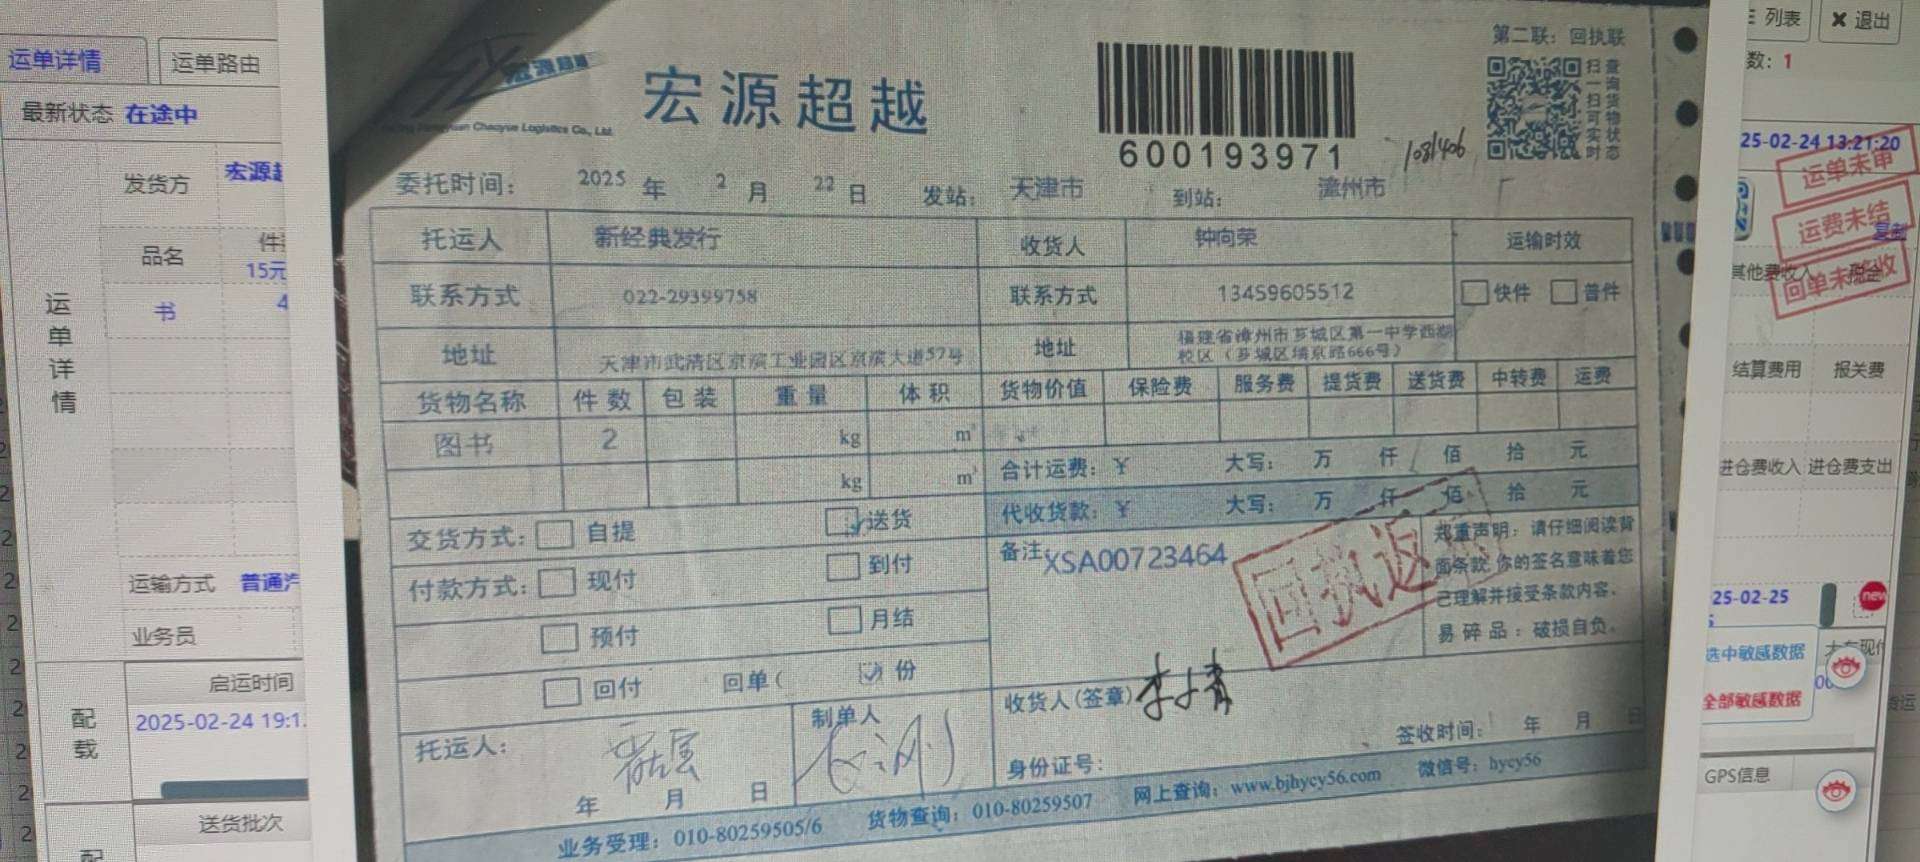 运单详情 运单路由
最新状态 在途中
发货方
品名
15元
书
4
运单详情
运输方式
业务员
启运时间
配载
2025-02-24 19:1
送货批次
宏源超越
宏源超越
Chaoyue Logistics Co., Ltd.
600193971
第二联：回执联
扫一扫可实时
查询货物状态
委托时间： 2025 年 2 月 22 日 发站： 天津市 到站： 漳州市
托运人 新经典发行 收货人 钟向荣 运输时效
联系方式 022-29399758 联系方式 13459605512 快件 普件
地址 天津市武清区京滨工业园区京滨大道57号 地址 福建省漳州市芗城区第一中学西湖
校区（芗城区靖京路666号）
货物名称 件数 包装 重量 体积 货物价值 保险费 服务费 提货费 送货费 中转费 运费
图书 2 kg m³
kg m³
合计运费：￥ 大写： 万 仟 佰 拾 元
代收货款：￥ 大写： 万 仟 佰 拾 元
交货方式： 自提 送货
付款方式： 现付 到付
预付 月结
回付 回单( 份
备注 XSA00723464
回执返
郑重声明：请仔细阅读背
面条款，你的签名意味着您
已理解并接受条款内容。
易碎品：破损自负。
托运人：
年 月 日
制单人
收货人(签章)
身份证号：
签收时间： 年 月 日
业务受理：010-80259505/6 货物查询：010-80259507 网上查询：www.bjhycy56.com 微信号：hycy56
列表 退出
数：1
25-02-24 13:21:20
运单未审
运费未结
复制
其他费收入 税金
回单未签收
结算费用 报关费
进仓费收入 进仓费支出
25-02-25
new
选中敏感数据
全部敏感数据
GPS信息